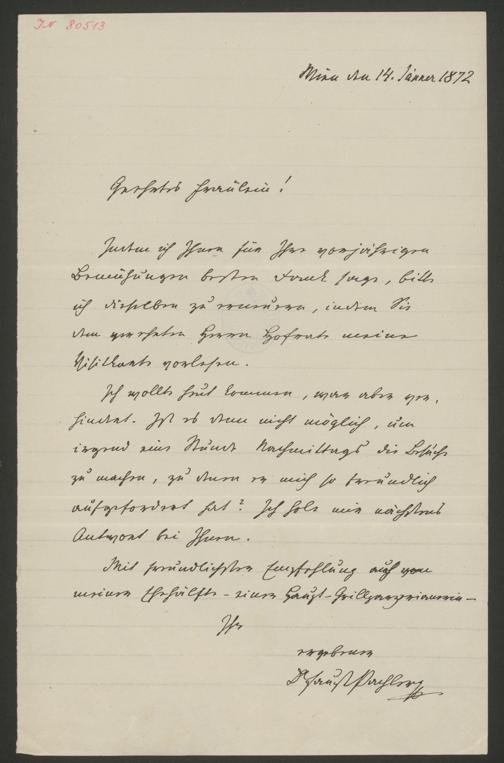 I.N. 80513
Wien den 14. Jänner 1872
Geehrtes Fräulein!
Indem ich Ihnen für Ihre vorjährigen
Bemühungen besten Dank sage, bitte
ich dieselben zu erneuern, indem Sie
dem verehrten Herrn Hofrate meine
Visitkarte vorlesen.
Ich wollte heut kommen, war aber ver-
hindert. Ist es denn nicht möglich, um
irgend eine Stunde Nachmittags die Besuche
zu machen, zu denen er mich so freundlich
aufgefordert hat? Ich hole mir nächstens
Antwort bei Ihnen.
Mit freundlichster Empfehlung auch von
meiner Ehehälfte - einer Haupt-Grillparzerianerin -
Ihr
ergebener
Dr Faust Pachler